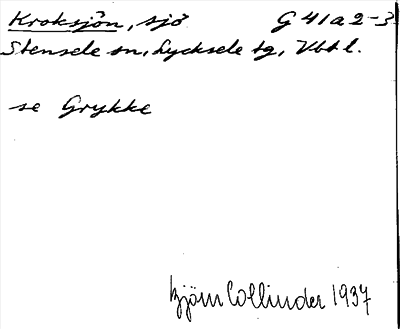 Kroksjön, sjö G 41 a 2-3
Stensele sn, Lycksele tg, Vbt l.
se Grykke
Björn Collinder 1937